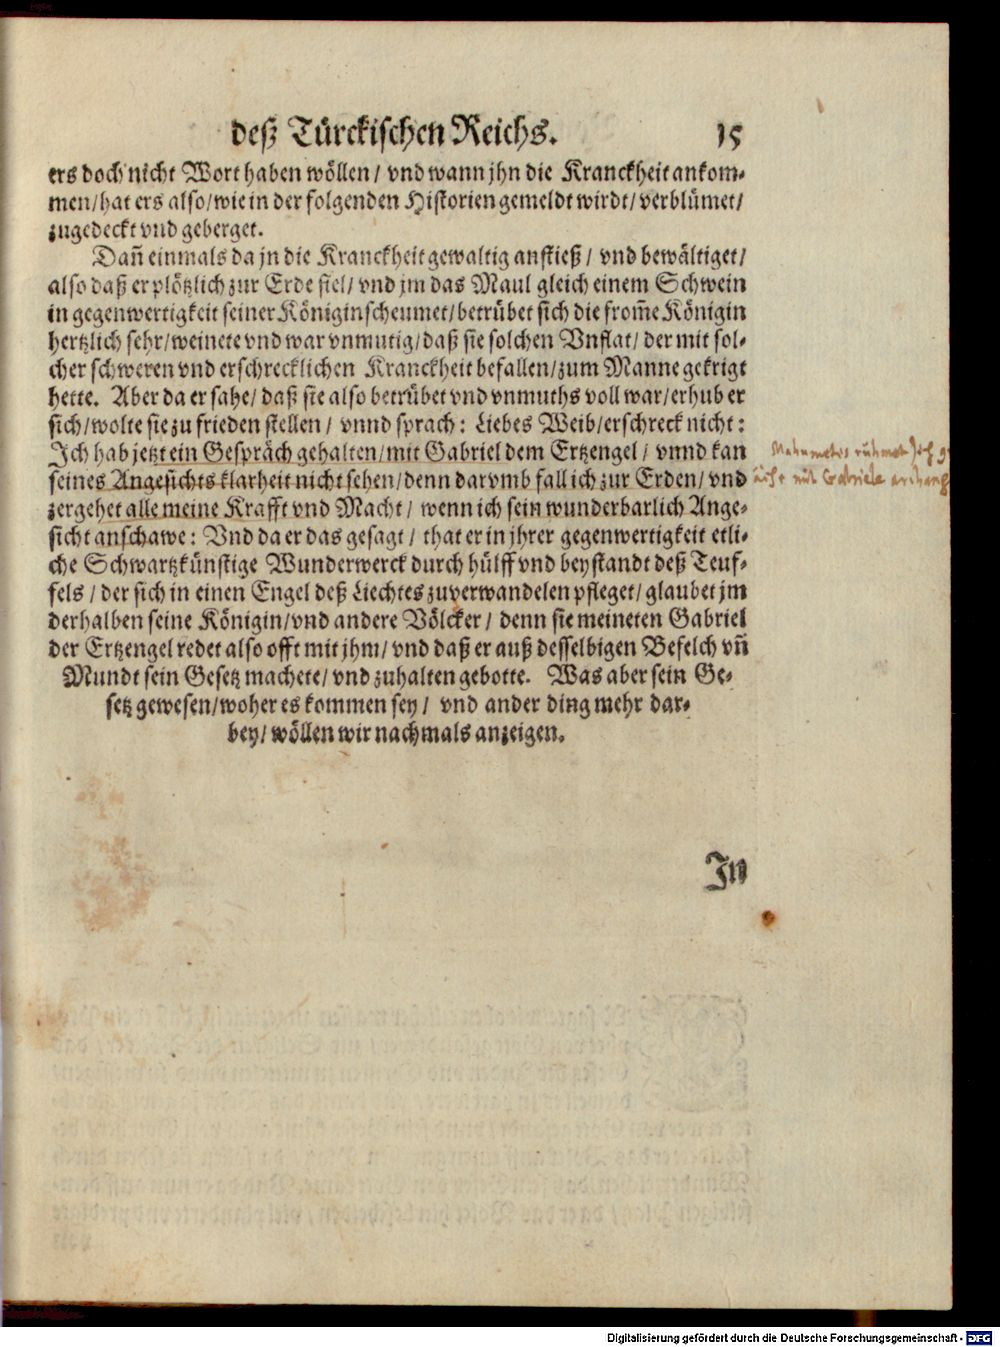 deß Türckischen Reichs. 15
ers doch nicht Wort haben wöllen / vnd wann jhn die Kranckheit ankom-
men / hat ers also / wie in der folgenden Historien gemeldt wirdt / verblümet /
zugedeckt vnd geberget.
Dañ einmals da jn die Kranckheit gewaltig anstieß / vnd bewältiget /
also daß er plötzlich zur Erde fiel / vnd jm das Maul gleich einem Schwein
in gegenwertigkeit seiner Königin scheumet / betrübet sich die from̃e Königin
hertzlich sehr / weinete vnd war vnmutig / daß sie solchen Vnflat / der mit sol-
cher schweren vnd erschrecklichen Kranckheit befallen / zum Manne gekrigt
hette. Aber da er sahe / daß sie also betrübet vnd vnmuths voll war / erhub er
sich / wolte sie zu frieden stellen / vnnd sprach: Liebes Weib / erschreck nicht:
Ich hab jetzt ein Gespräch gehalten / mit Gabriel dem Ertzengel / vnnd kan
seines Angesichts klarheit nicht sehen / denn darvmb fall ich zur Erden / vnd
zergehet alle meine Krafft vnd Macht / wenn ich sein wunderbarlich Ange-
sicht anschawe: Vnd da er das gesagt / that er in jhrer gegenwertigkeit etli-
che Schwartzkünstige Wunderwerck durch hülff vnd beystandt deß Teuf-
fels / der sich in einen Engel deß Liechtes zuverwandelen pfleget / glaubet jm
derhalben seine Königin / vnd andere Völcker / denn sie meineten Gabriel
der Ertzengel redet also offt mit jhm / vnd daß er auß desselbigen Befelch vñ
Mundt sein Gesetz machete / vnd zuhalten gebotte. Was aber sein Ge-
setz gewesen / woher es kommen sey / vnd ander ding mehr dar-
bey / wöllen wir nachmals anzeigen.
Mahumetes rühmet sich
mit Gabriele
In
Digitalisierung gefördert durch die Deutsche Forschungsgemeinschaft - DFG